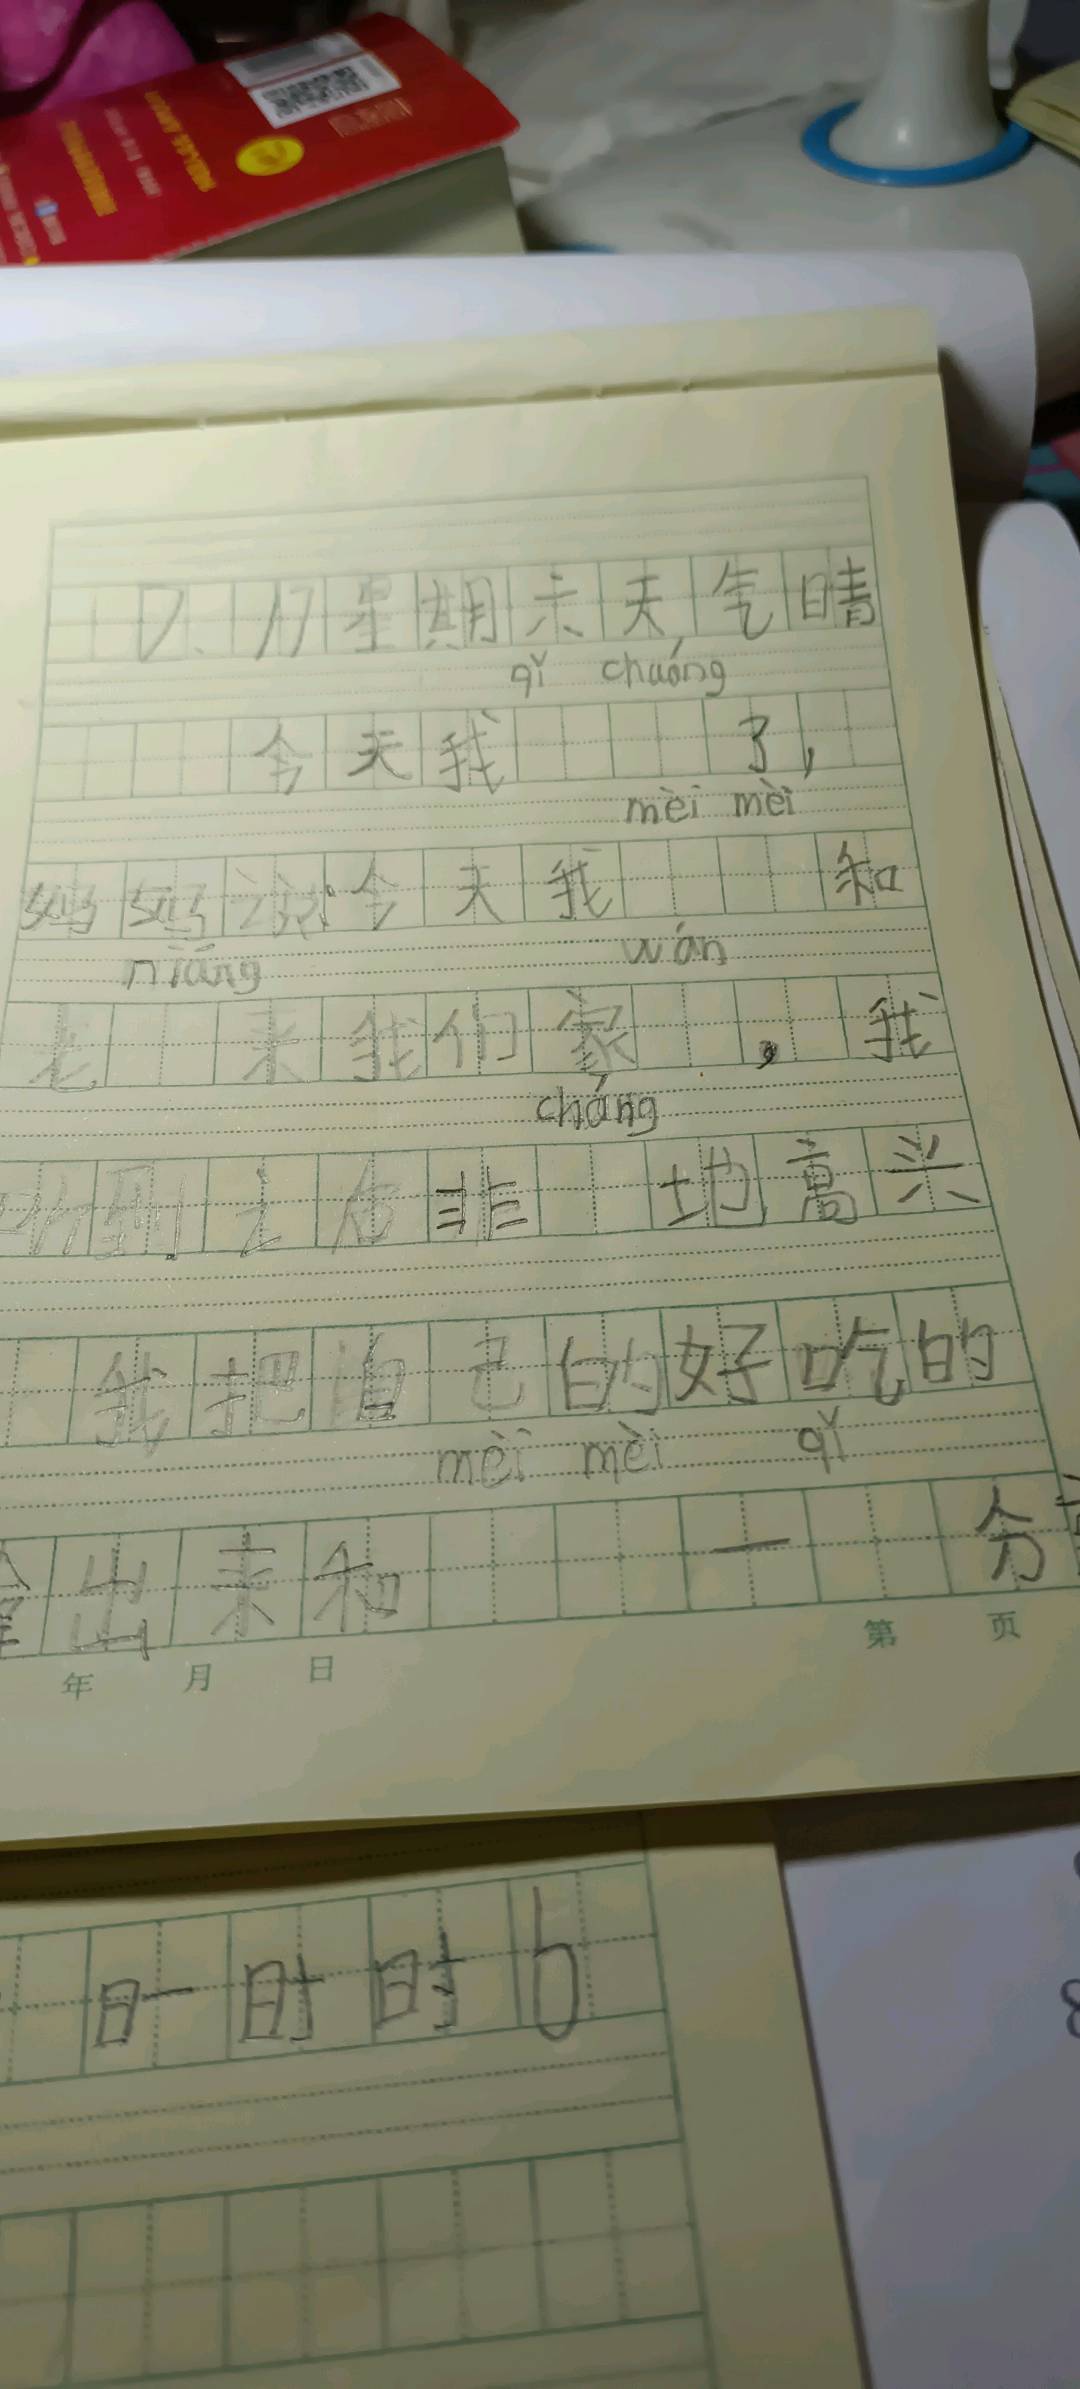 10.17星期六天气晴
qǐ chuáng
今天我 了,
mèi mèi
妈妈说:今天我 和
niāng wán
老 来我们家 ,我
cháng
听到之后非 地高兴
我把自己的好吃的
mèi mèi qǐ
拿出来和 一 分
年 月 日 第 页
时时